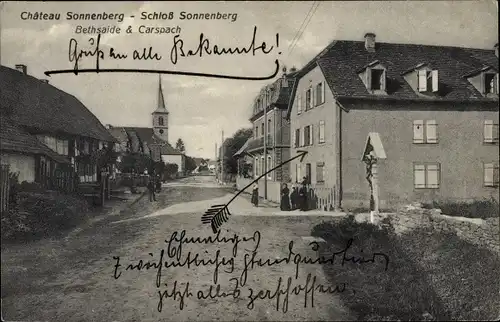 Château Sonnenberg - Schloß Sonnenberg
Bethsaide & Carspach
Gruß an alle Bekannte!
Ehmaliges
7 wöchentliches Standquartier
jetzt alles zerschossen